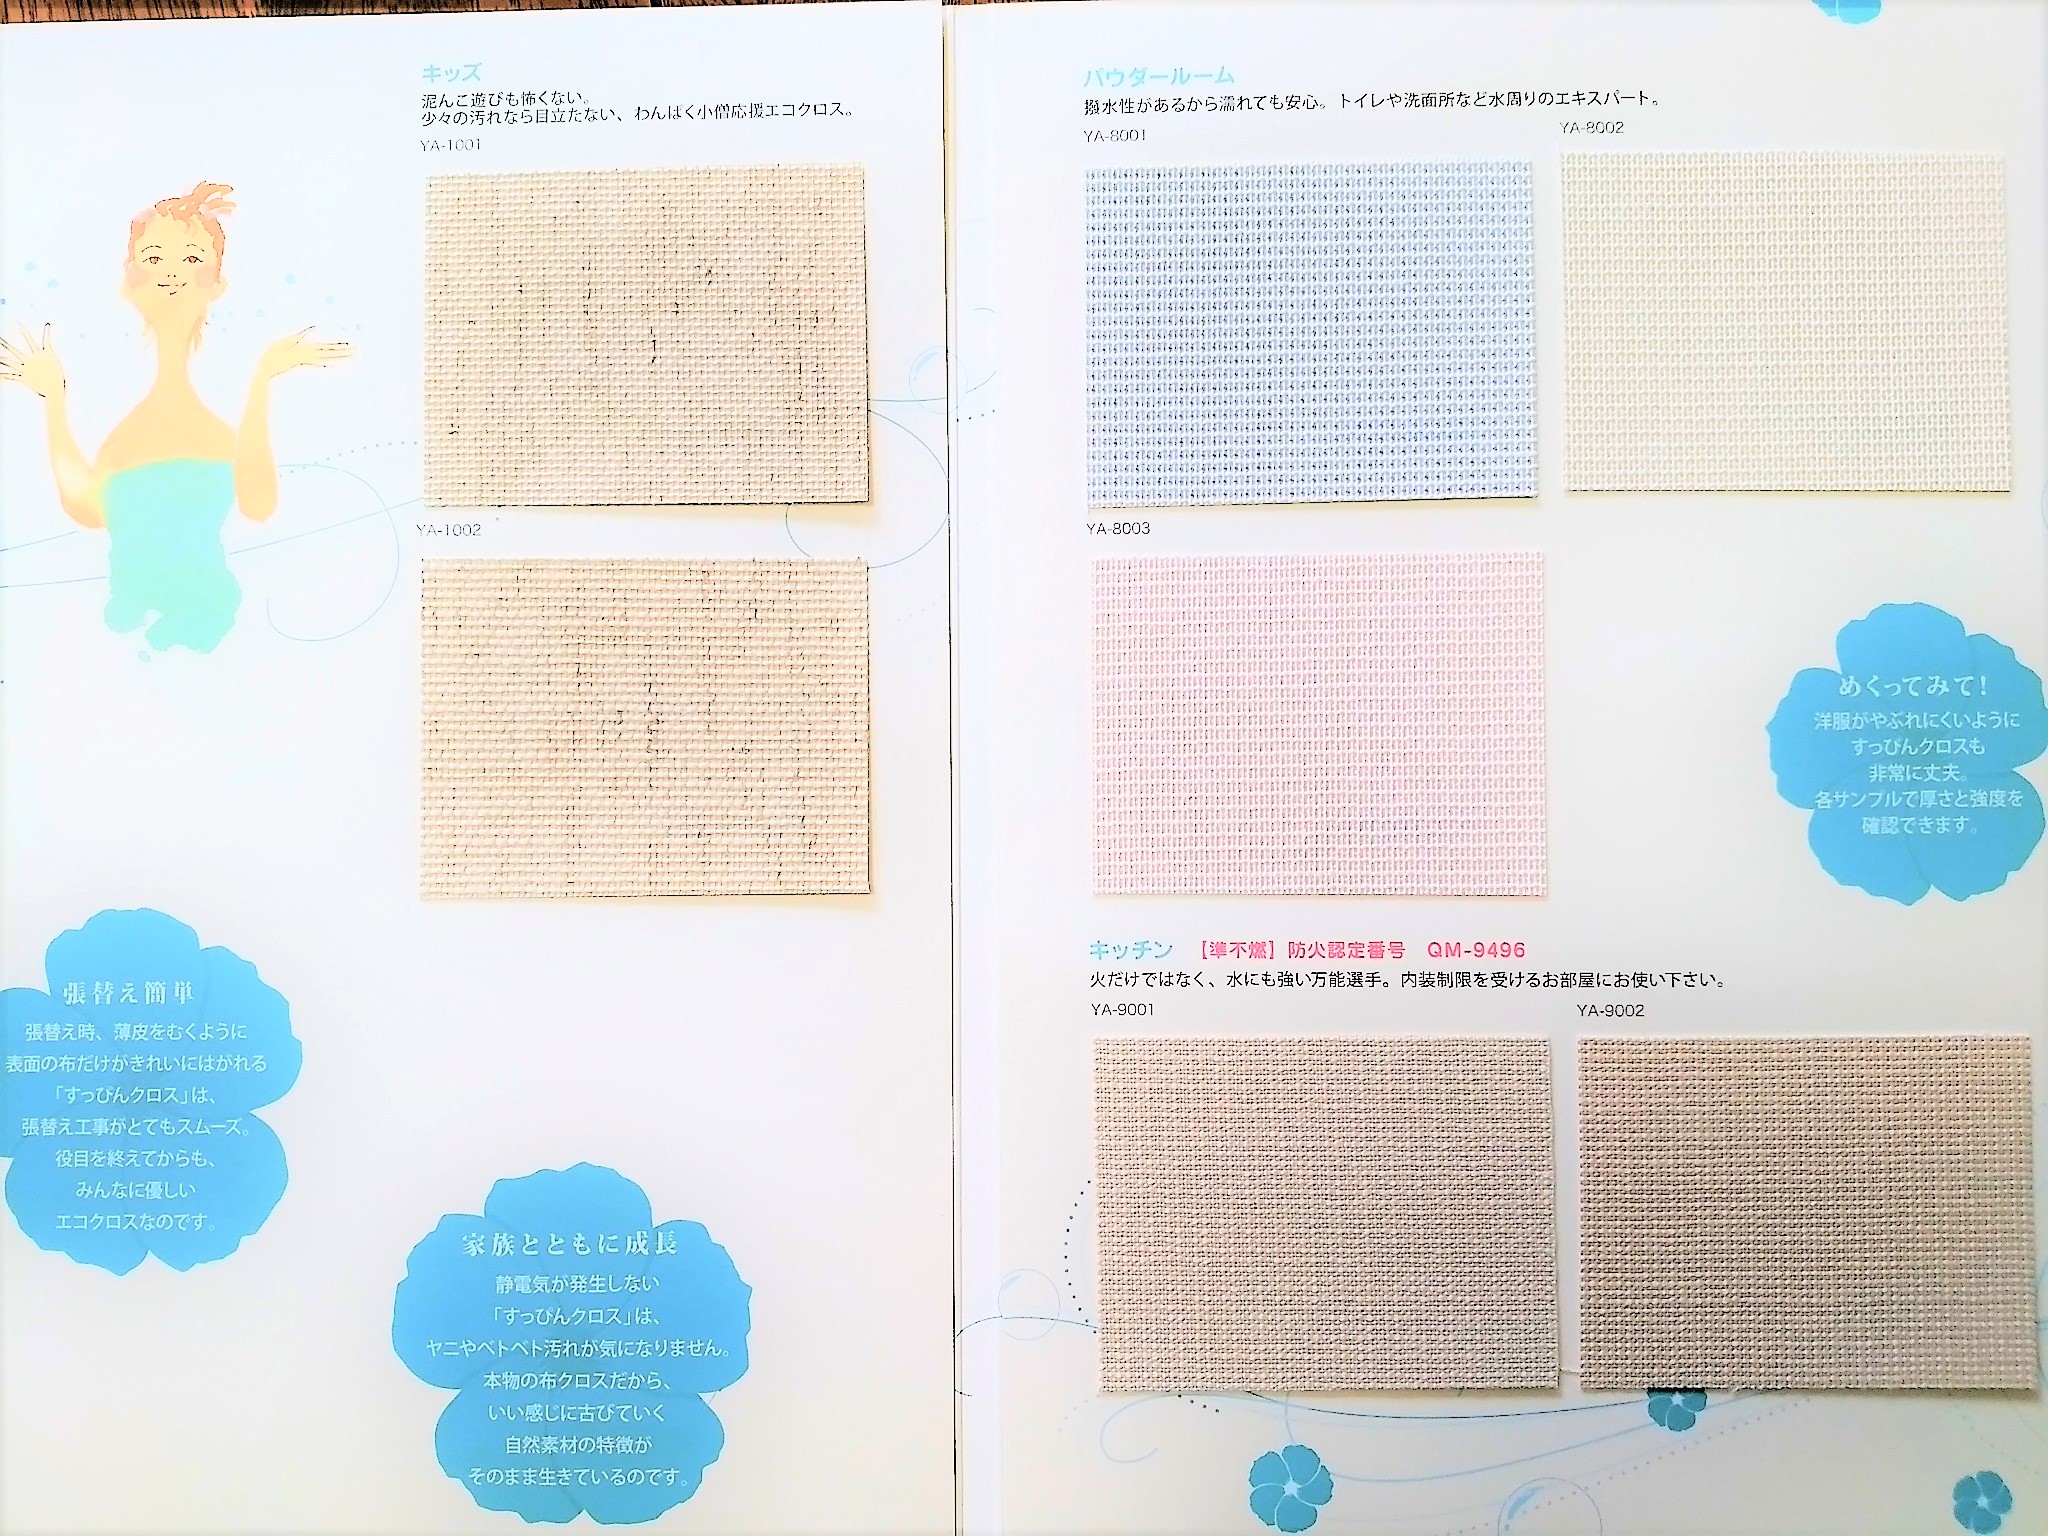 キッズ
泥んこ遊びも怖くない。
少々の汚れなら目立たない、わんぱく小僧応援エコクロス。
YA-1001
YA-1002
張替え簡単
張替え時、薄皮をむくように
表面の布だけがきれいにはがれる
「すっぴんクロス」は、
張替え工事がとてもスムーズ。
役目を終えてからも、
みんなに優しい
エコクロスなのです。
家族とともに成長
静電気が発生しない
「すっぴんクロス」は、
ヤニやベトベト汚れが気になりません。
本物の布クロスだから、
いい感じに古びていく
自然素材の特徴が
そのまま生きているのです。
パウダールーム
撥水性があるから濡れても安心。トイレや洗面所など水周りのエキスパート。
YA-8001
YA-8002
YA-8003
めくってみて!
洋服がやぶれにくいように
すっぴんクロスも
非常に丈夫。
各サンプルで厚さと強度を
確認できます。
キッチン 【準不燃】防火認定番号 QM-9496
火だけではなく、水にも強い万能選手。内装制限を受けるお部屋にお使い下さい。
YA-9001
YA-9002